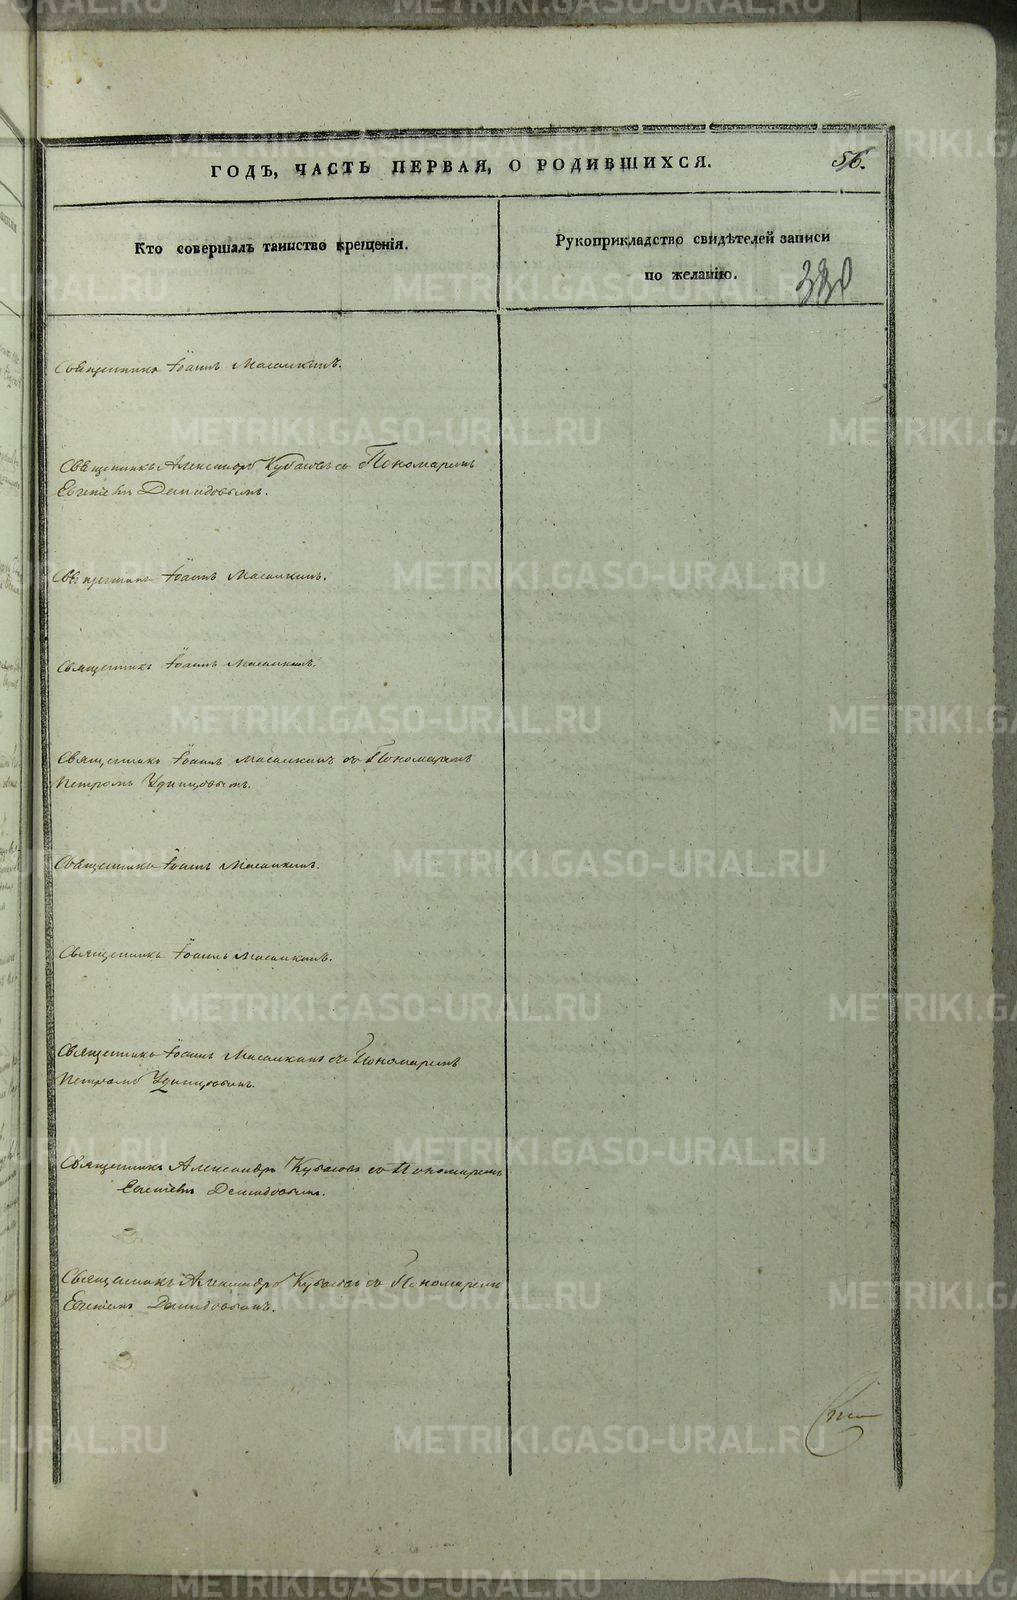 ГОДЪ, ЧАСТЬ ПЕРВАЯ, О РОДИВШИХСЯ.
56.
Кто совершалъ таинство крещенія.
Рукоприкладство свидѣтелей записи
по желанію.
330
Священникъ Іоаннъ Масалкинъ.
Священникъ Александръ Кубасовъ съ Пономаремъ
Евгеніемъ Демидовымъ.
Священникъ Іоаннъ Масалкинъ.
Священникъ Іоаннъ Масалкинъ.
Священникъ Іоаннъ Масалкинъ съ Пономаремъ
Петромъ Удинцовымъ.
Священникъ Іоаннъ Масалкинъ.
Священникъ Іоаннъ Масалкинъ.
Священникъ Іоаннъ Масалкинъ съ Пономаремъ
Петромъ Удинцовымъ.
Священникъ Александръ Кубасовъ съ Пономаремъ
Евгеніемъ Демидовымъ.
Священникъ Александръ Кубасовъ съ Пономаремъ
Евгеніемъ Демидовымъ.
METRIKI.GASO-URAL.RU